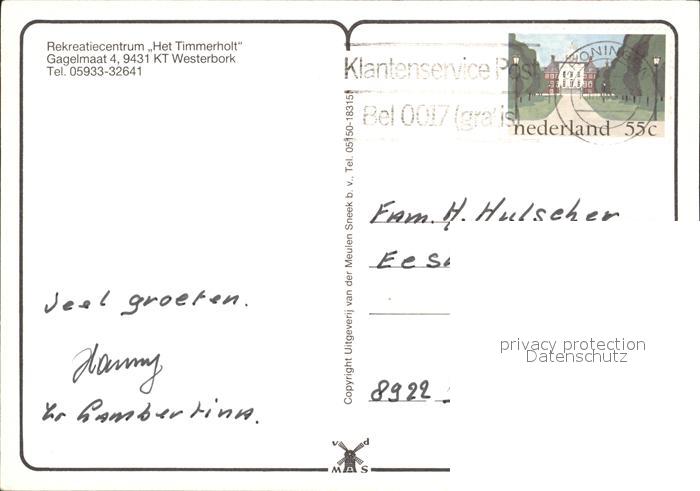 Rekreatiecentrum „Het Timmerholt"
Gagelmaat 4, 9431 KT Westerbork
Tel. 05933-32641
Klantenservice Post
Bel 0017 (gratis)
GRONINGEN
nederland 55c
Copyright Uitgeverij van der Meulen Sneek b. v., Tel. 05150-18315
Fam. H. Hulscher
8922
privacy protection
Datenschutz
veel groeten.
Hanny
Zr Lambertina.
v d
MAS